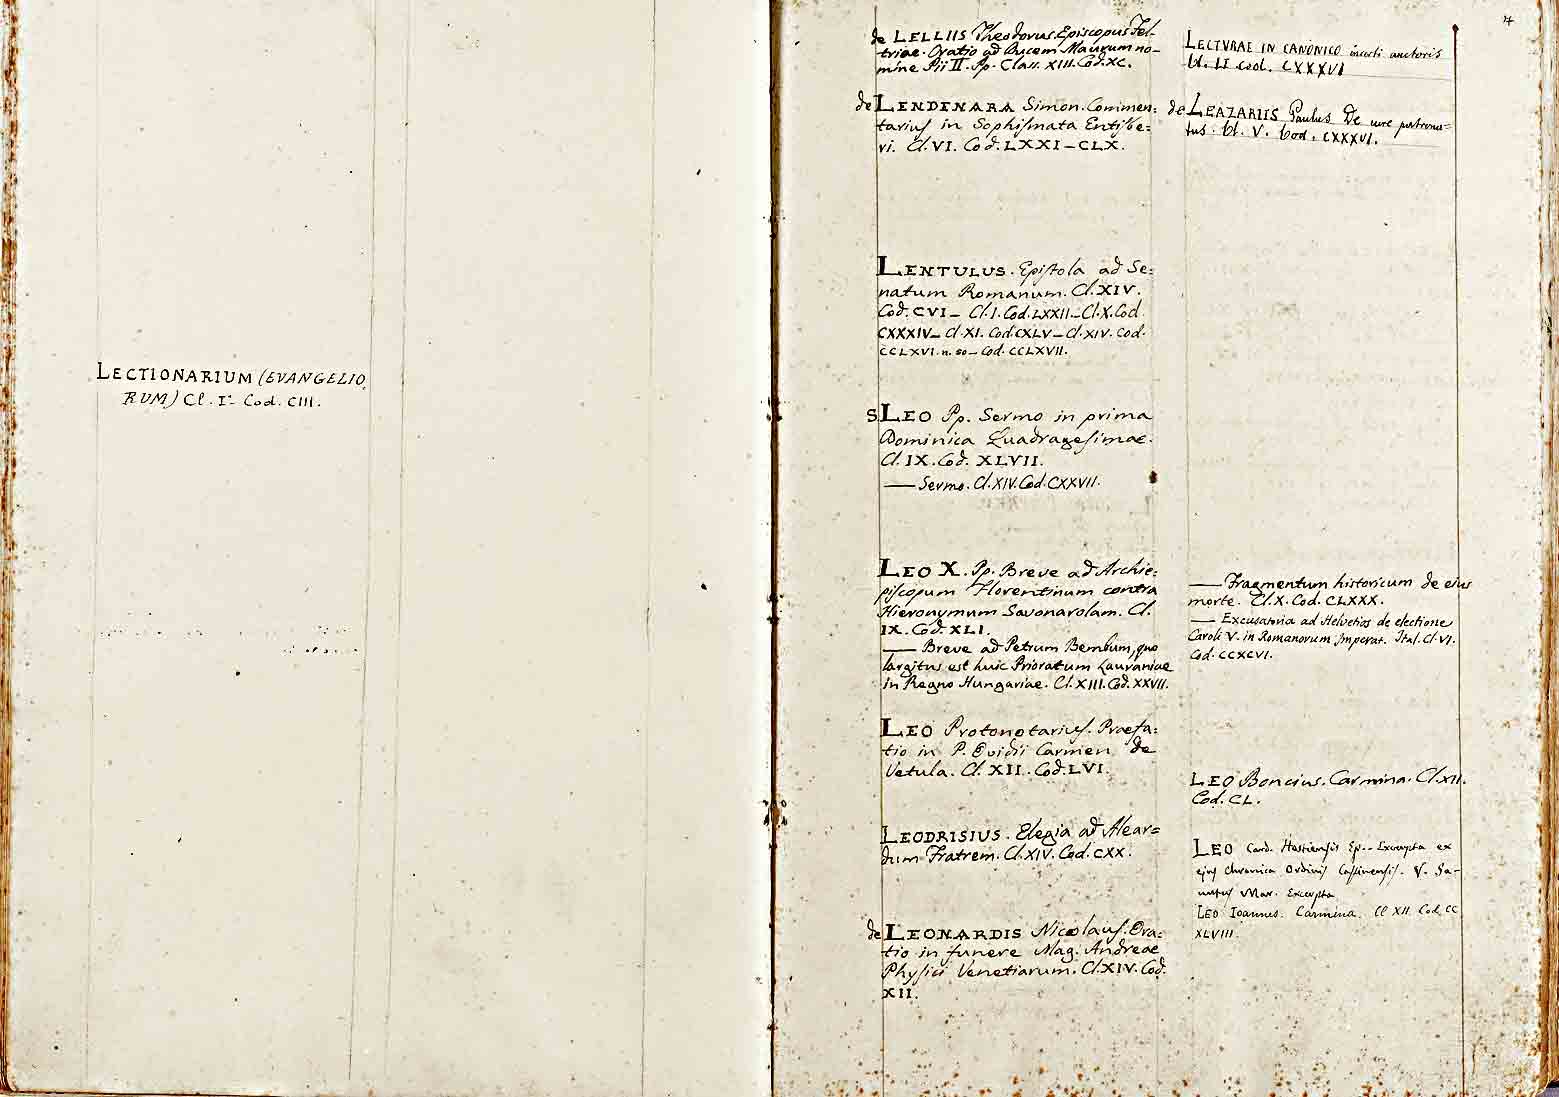 LECTIONARIUM (EVANGELIO
RUM) Cl. I. Cod. CIII.
4
de LELLIIS Theodorus. Episcopus Fel-
triae. Oratio ad Ducem Maurum no-
mine Pii II. Pp. Class. XIII. Cod. XC.
de LENDENARA Simon. Commen:
tariuſ in Sophiſmata Entiſbe:
ri. Cl. VI. Cod. LXXI – CLX.
LENTULUS. Epiſtola ad Se:
natum Romanum. Cl. XIV.
Cod. CVI – Cl. I. Cod. LXXII – Cl. X. Cod
CXXXIV – Cl. XI. Cod. CXLV – Cl. XIV. Cod.
CCLXVI. n. 50 – Cod. CCLXVII.
S LEO Pp. Sermo in prima
Dominica Quadrageſimae.
Cl. IX. Cod. XLVII.
— Sermo. Cl. XIV. Cod. CXXVII.
LEO X. Pp. Breve ad Archie:
piſcopum Florentinum contra
Hieronymum Savonarolam. Cl.
IX. Cod. XLI.
— Breve ad Petrum Bembum, quo
largitus est huic Prioratum Lauraniae
in Regno Hungariae. Cl. XIII. Cod. XXVII.
LEO Protonotariuſ. Praefa:
tio in P. Ovidii Carmen de
Vetula. Cl. XII. Cod. LVI.
LEODRISIUS. Elegia ad Alear=
dum Fratrem. Cl. XIV. Cod. CXX.
de LEONARDIS Nicolauſ. Ora:
tio in funere Mag. Andreae
Phyſici Venetiarum. Cl. XIV. Cod.
XII.
LECTURAE IN CANONICO incerti auctoris
Cl. II cod. CXXXVI
de LEAZARIIS Paulus De iure patrona=
tus. Cl. V. Cod. CXXXVI.
— Fragmentum historicum de eius
morte. Cl. X. Cod. CLXXX.
— Excusatoria ad Helvetios de electione
Caroli V. in Romanorum Imperat. Ital. Cl. VI.
Cod. CCXCVI.
LEO Boncius. Carmina. Cl. XII.
Cod. CL.
LEO Card. Hostiensis Ep.. Excerpta ex
ejuſ chronica Ordiniſ Caſſinenſiſ. V. Sa-
nutuſ Mar. Excerpta
LEO Ioannes. Carmina. Cl XII. Cod. CC
XLVIII.